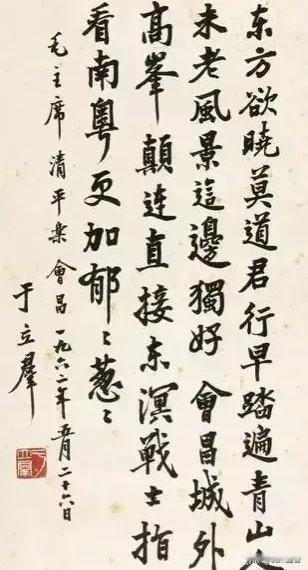 东方欲晓莫道君行早踏遍青山人
未老風景這邊獨好 會昌城外
高峯顛连直接东溟戰士指
看南粵更加郁〻葱〻
毛主席清平樂會昌一九六二年五月二十六日
于立羣